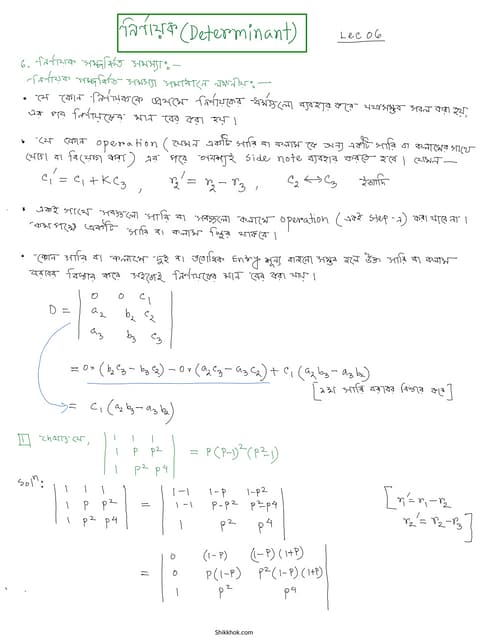 নির্ণায়ক (Determinant)
Lec 06
6. নির্ণায়ক সম্পর্কিত সমস্যা:-
নির্ণায়ক সম্পর্কিত সমস্যা সমাধানে লক্ষণীয়:-
• যে কোন নির্ণায়ককে প্রথমে নির্ণায়কের ধর্মগুলো ব্যবহার করে যথাসম্ভব সরল করা হয়
এর পর নির্ণায়কের মান বের করা হয়।
• যে কোন operation (যেমন একটি সারি বা কলাম কে অন্য একটি সারি বা কলামের সাথে
যোগ বা বিয়োগ করা) এর পরে অবশ্যই side note ব্যবহার করতে হবে। যেমন—
c₁′ = c₁ + KC₃ , r₂′ = r₂ - r₃ , C₂ ↔ C₃ ইত্যাদি
• একই সাথে সবগুলো সারি বা সবগুলো কলামে operation (একই step-এ) করা যাবে না।
কমপক্ষে একটি সারি বা কলাম স্থির থাকবে।
• কোন সারি বা কলামে দুই বা ততোধিক Entry শূন্য বানানো সম্ভব হলে উক্ত সারি বা কলাম
বরাবর বিস্তার করে সহজেই নির্ণায়কের মান বের করা যায়।
D = | 0 0 c₁ |
| a₂ b₂ c₂ |
| a₃ b₃ c₃ |
= 0×(b₂c₃ - b₃c₂) - 0×(a₂c₃ - a₃c₂) + c₁(a₂b₃ - a₃b₂)
[১ম সারি বরাবর বিস্তার করে]
= c₁(a₂b₃ - a₃b₂)
1 দেখাও যে, | 1 1 1 |
| 1 p p² | = p(p-1)²(p²-1)
| 1 p² p⁴ |
Solⁿ:
| 1 1 1 | | 1-1 1-p 1-p² |
| 1 p p² | = | 1-1 p-p² p²-p⁴ | [r₁′ = r₁ - r₂
| 1 p² p⁴ | | 1 p² p⁴ | r₂′ = r₂ - r₃]
= | 0 (1-p) (1-p)(1+p) |
| 0 p(1-p) p²(1-p)(1+p) |
| 1 p² p⁴ |
Shikkhok.com